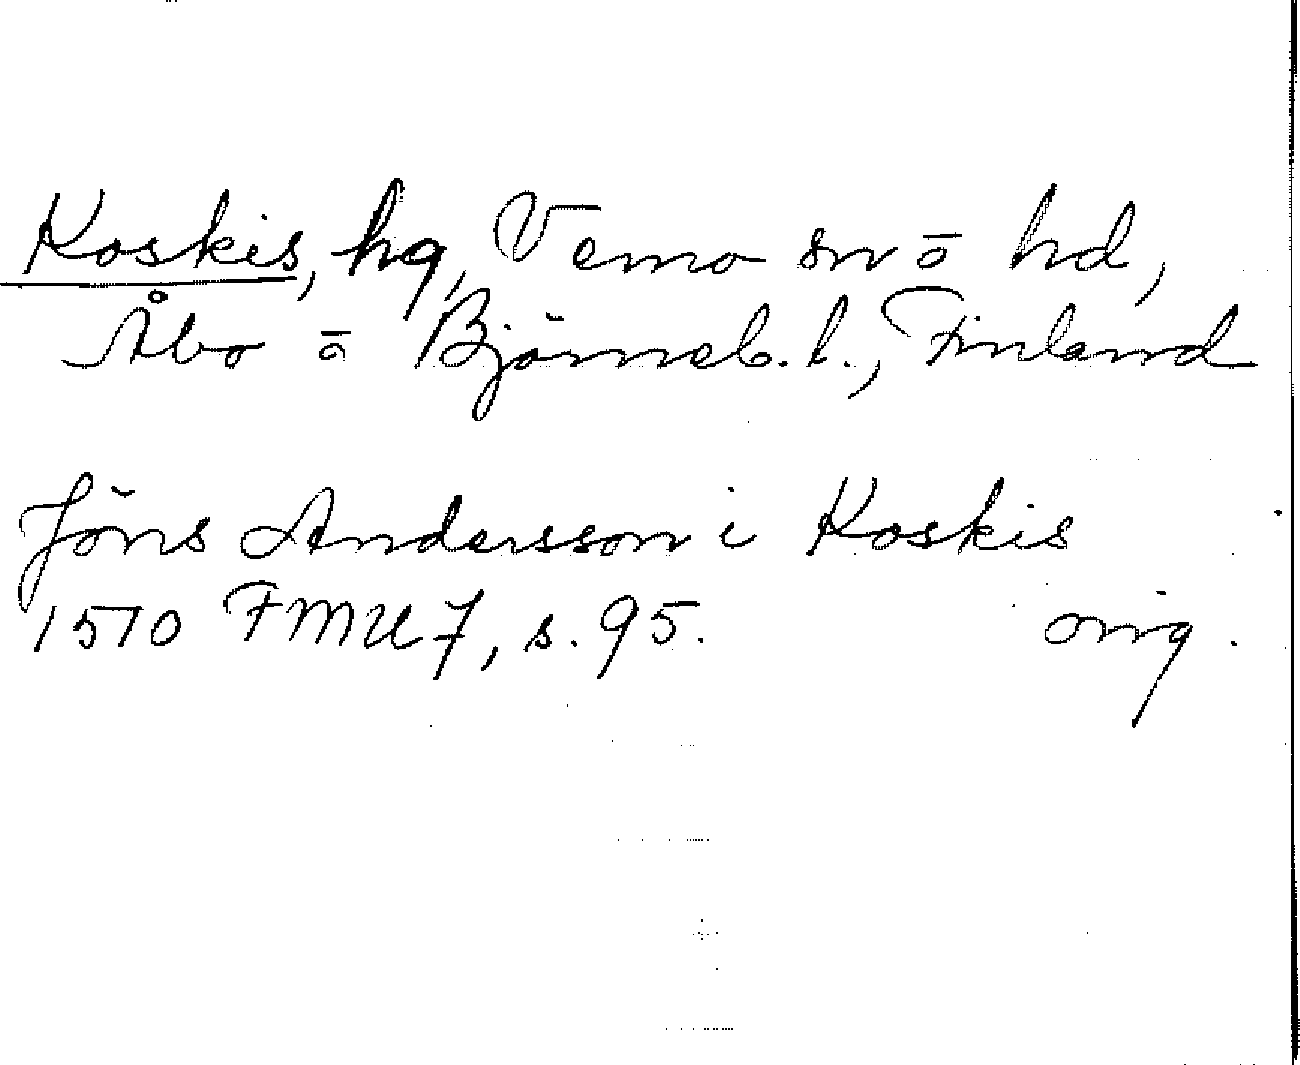 Koskis, hg, Vemo sn ō hd,
Åbo ō Björneb. l., Finland
Jöns Andersson i Koskis
1510 FMU 7, s. 95. orig.